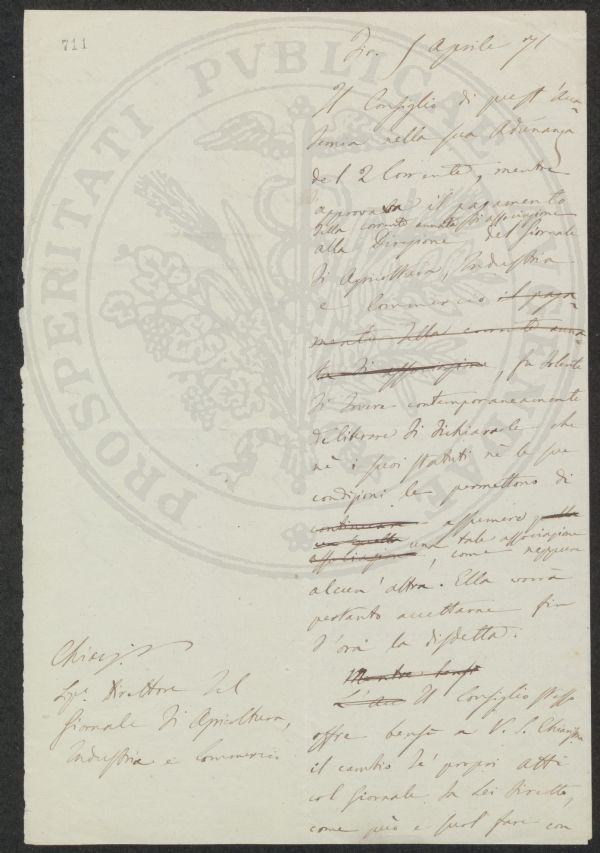 711
PROSPERITATI PUBLICAE AUGENDAE
Fir. 5 Aprile 71
Il Consiglio di quest' Acca-
demia nella sua Adunanza
del 2 Corrente, mentre
approvava il pagamento
della corrente annata di associazione
alla Direzione del Giornale
di Agricoltura, Industria
e Commercio il paga-
mento della corrente anna-
ta di associazione, fu dolente
di dovere contemporaneamente
deliberare di dichiararle che
nè i suoi statuti nè le sue
condizioni le permettono di
continuare assumere alla
una tale associazione
associazione, come neppure
alcun' altra. Ella vorrà
pertanto accettarne fin
d'ora la disdetta.
Mentre bensì
Il Consiglio stesso
offre bensì a V. S. Chiariss.
il cambio de' propri atti
col Giornale da Lei diretto,
come può e suol fare con
Chiariss.
Sig. Direttore del
Giornale di Agricoltura,
Industria e Commercio